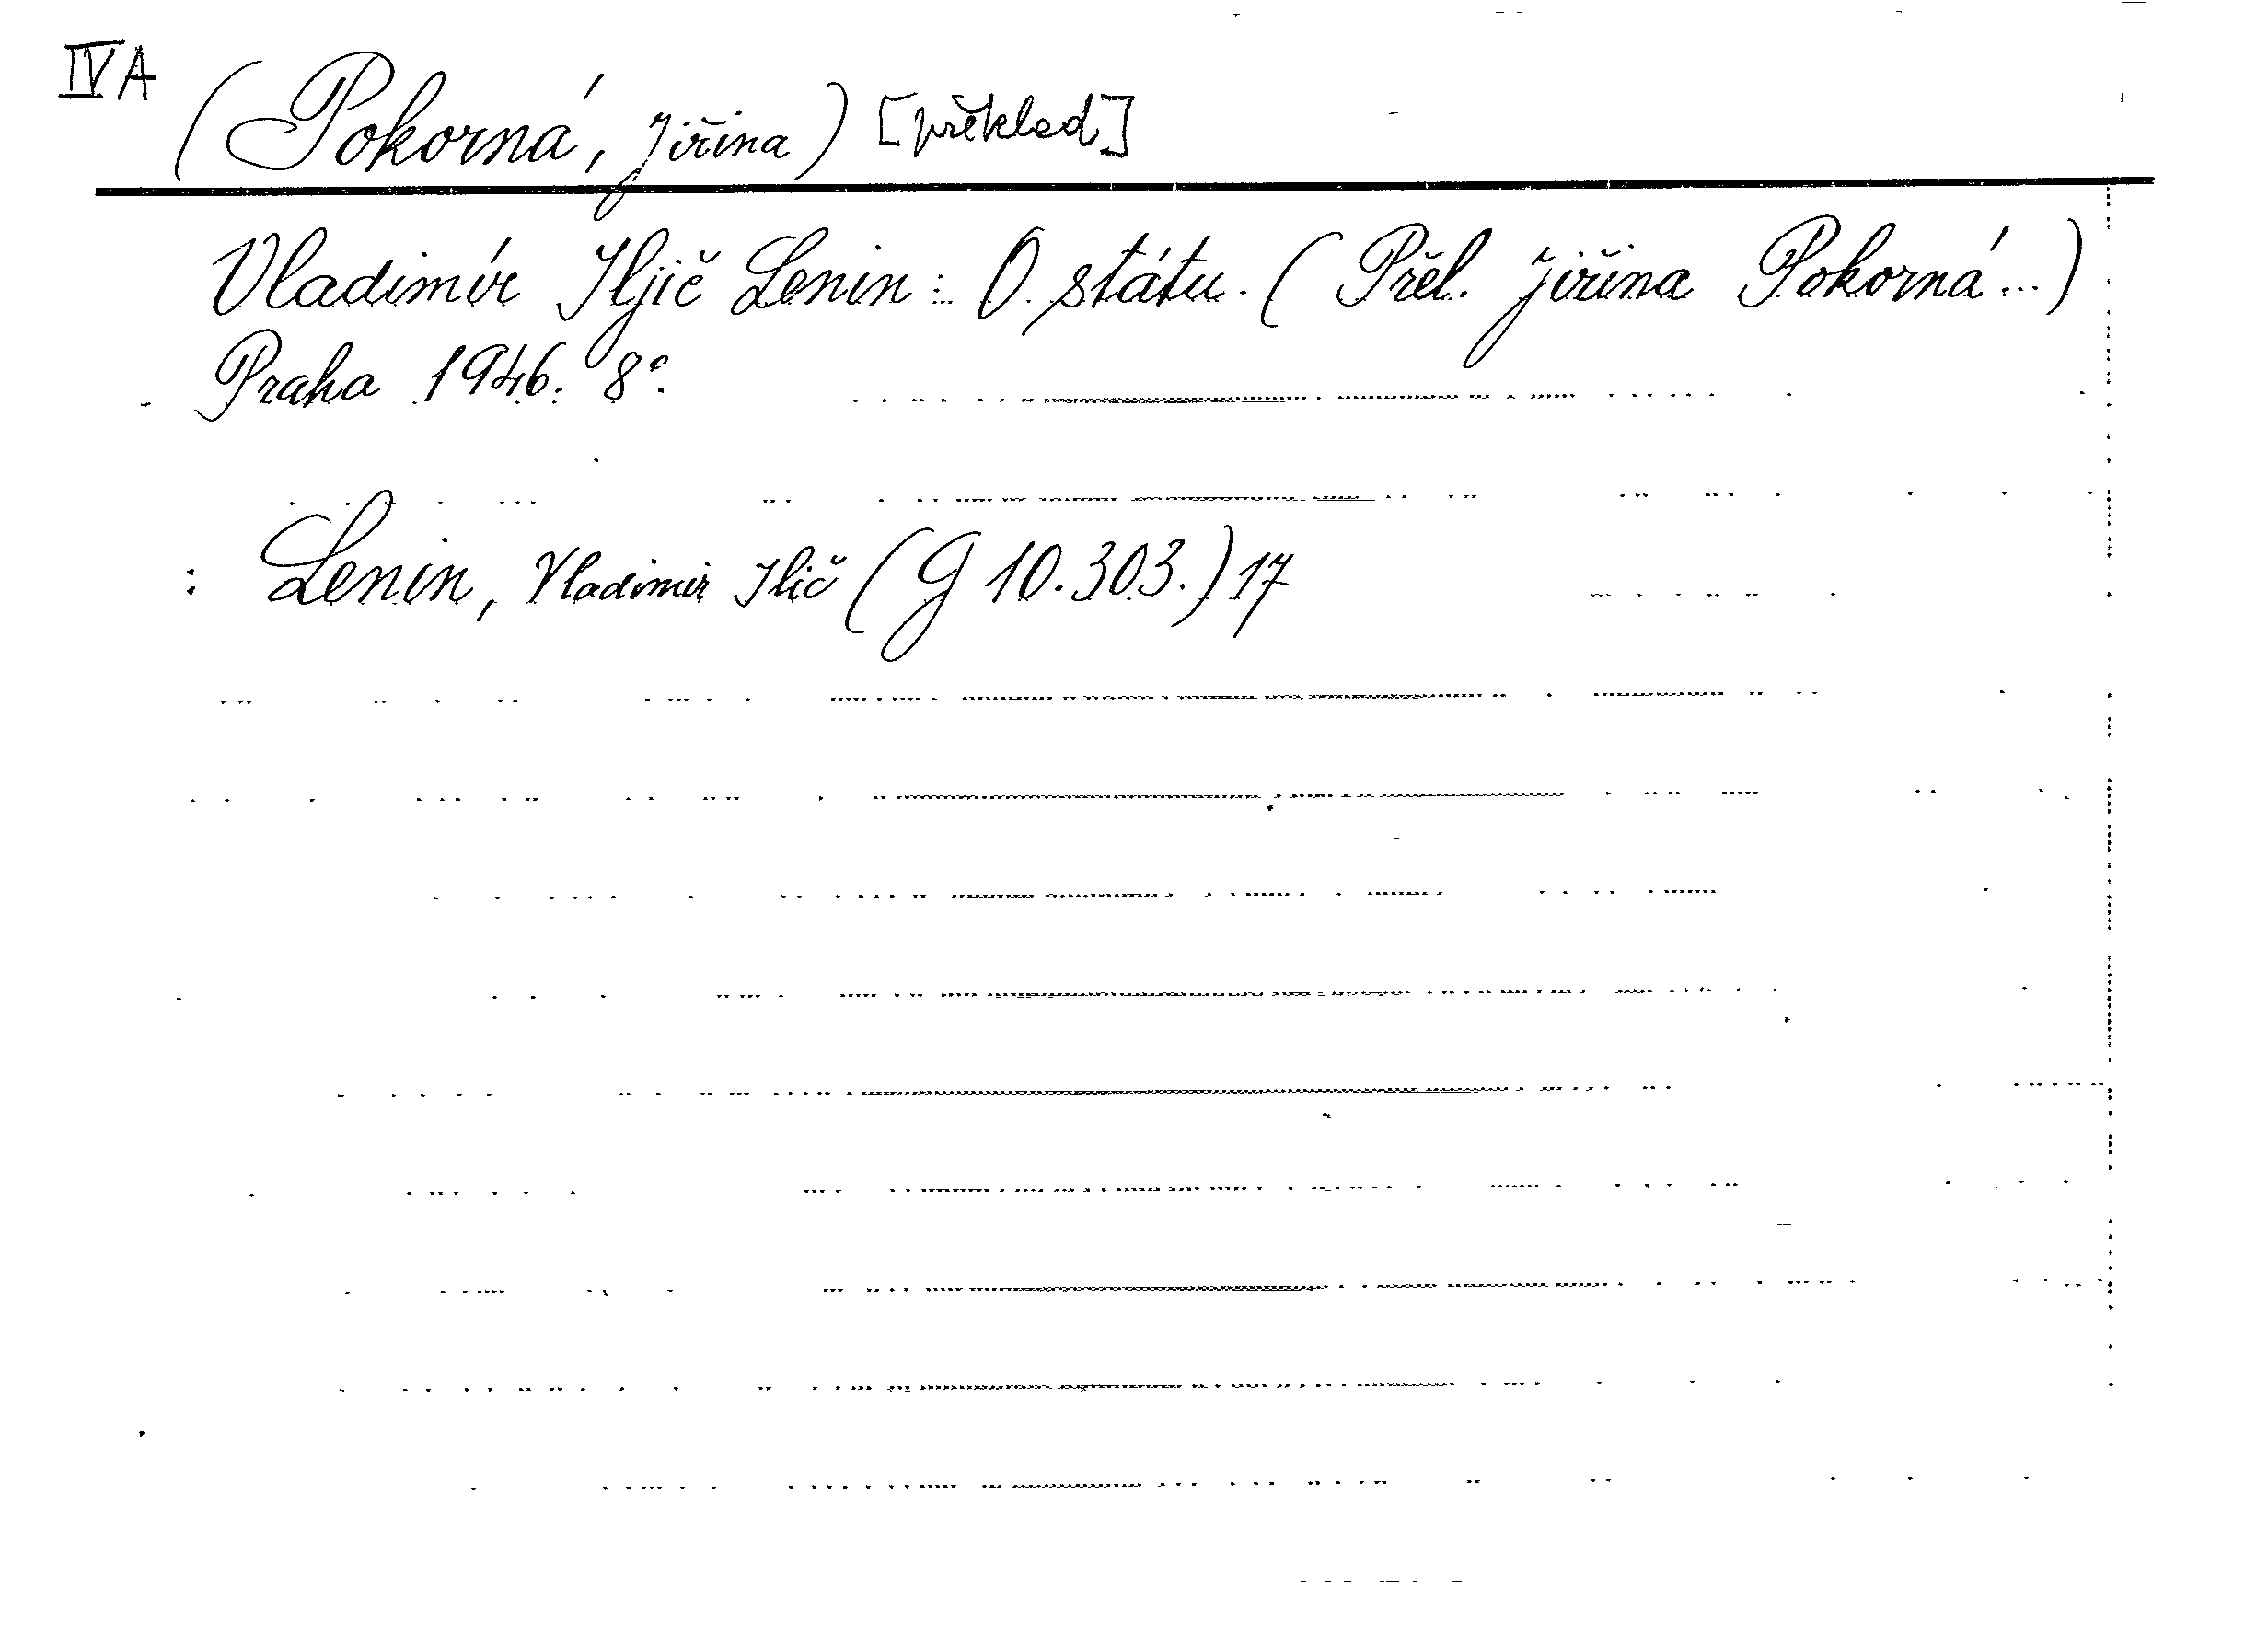 IV A
(Pokorná, Jiřina) [překlad]
Vladimír Iljič Lenin: O státu. (Přel. Jiřina Pokorná...)
Praha 1946. 8°.
: Lenin, Vladimir Ilič (G 10.303.) 17